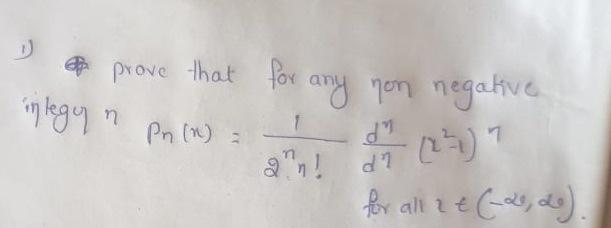 1) prove that for any non negative
integer n Pn(x) = 1/2ⁿn! dⁿ/dⁿ (x²-1)ⁿ
for all x ∈ (-∞, ∞).